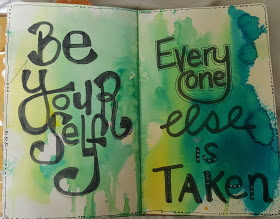 Be
Your
Self
Every
one
else
is
Taken